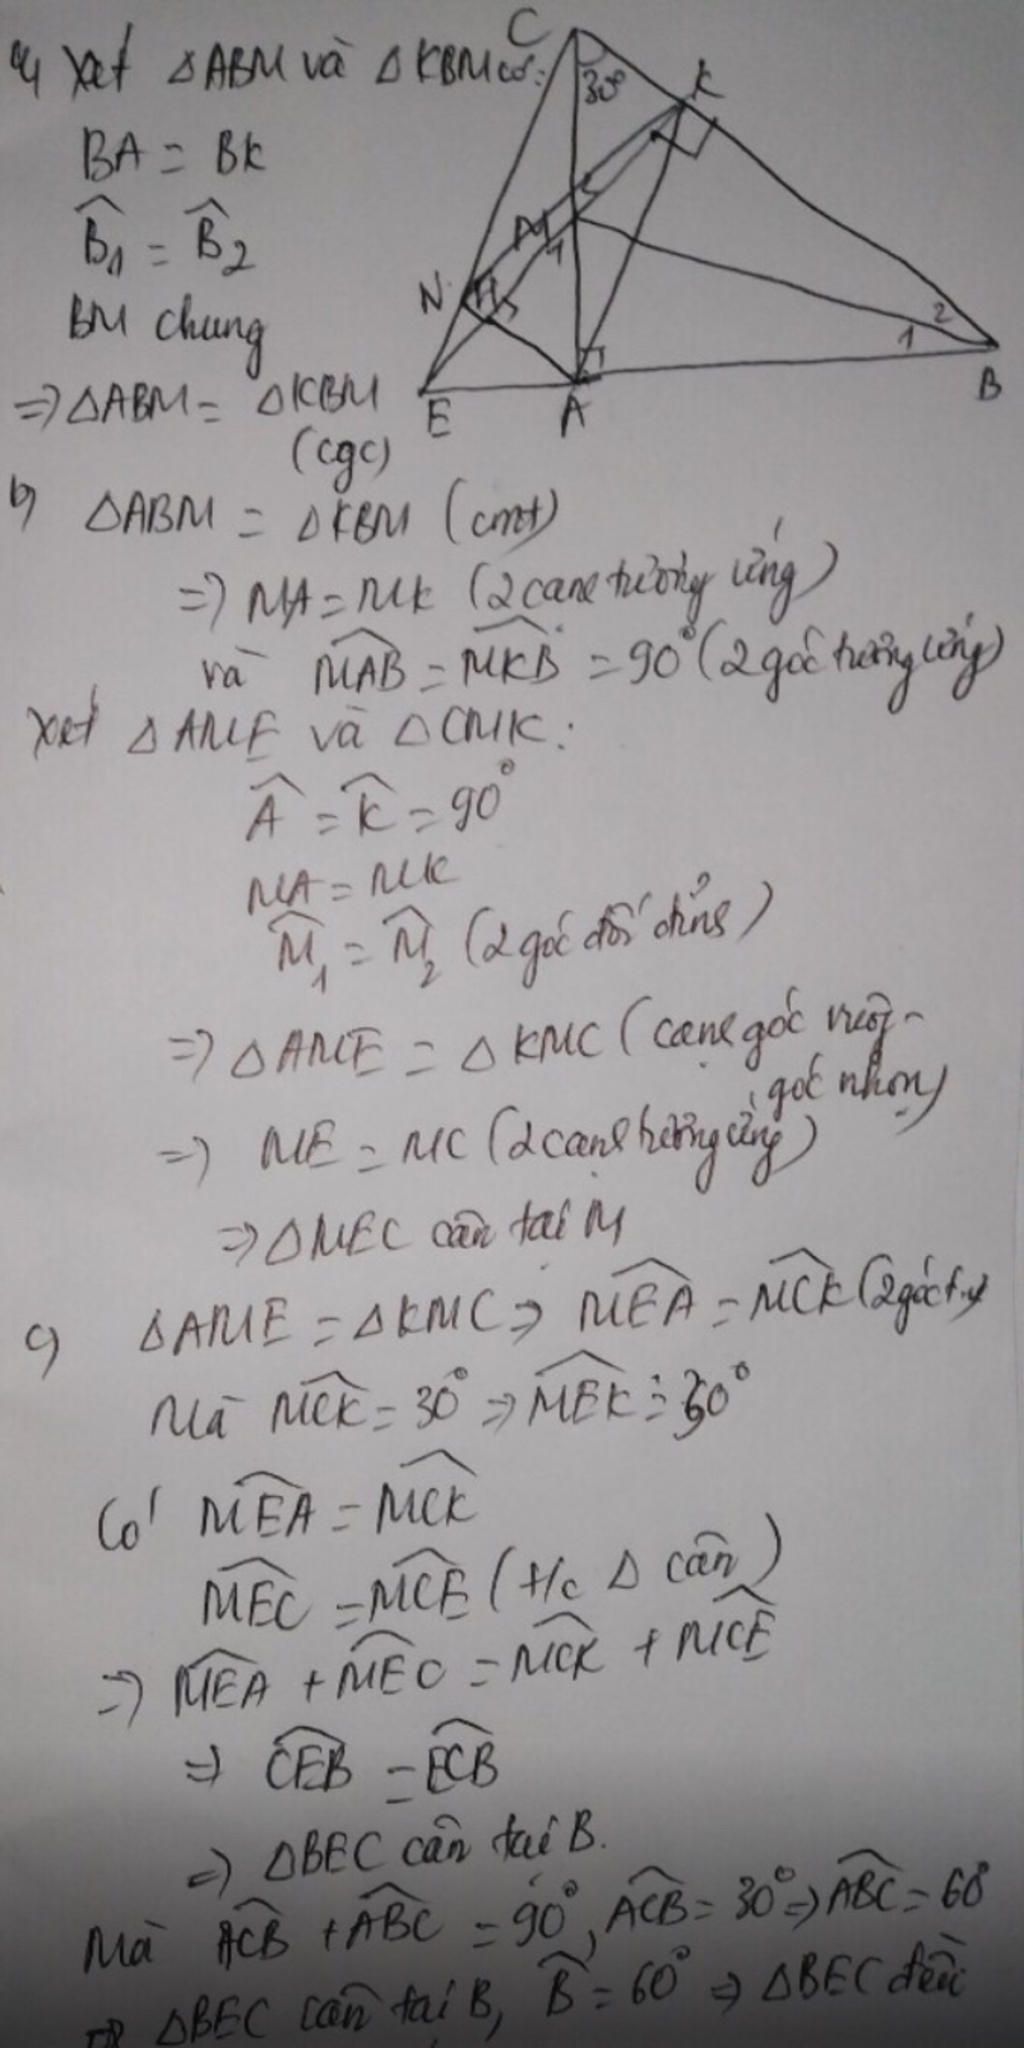 a, Xét △ABM và △KBM có:
BA = BK
B̂1 = B̂2
BM chung
⇒ △ABM = △KBM
(cgc)
C
30°
K
2
M
1
N
H
E
A
1
2
B
b, △ABM = △KBM (cmt)
⇒ MA = MK (2 cạnh tương ứng)
và M̂AB = M̂KB = 90° (2 góc tương ứng)
Xét △AME và △CMK:
Â = K̂ = 90°
MA = MK
M̂1 = M̂2 (2 góc đối đỉnh)
⇒ △AME = △KMC (cạnh góc vuông-
góc nhọn)
⇒ ME = MC (2 cạnh tương ứng)
⇒ △MEC cân tại M
c, △AME = △KMC ⇒ M̂EA = M̂CK (2 góc t.ư)
Mà M̂CK = 30° ⇒ M̂EK = 30°
Có M̂EA = M̂CK
M̂EC = M̂CE (t/c △ cân)
⇒ M̂EA + M̂EC = M̂CK + M̂CE
⇒ ĈEB = ÊCB
⇒ △BEC cân tại B.
Mà ÂCB + ÂBC = 90°, ÂCB = 30° ⇒ ÂBC = 60°
⇒ △BEC cân tại B, B̂ = 60° ⇒ △BEC đều